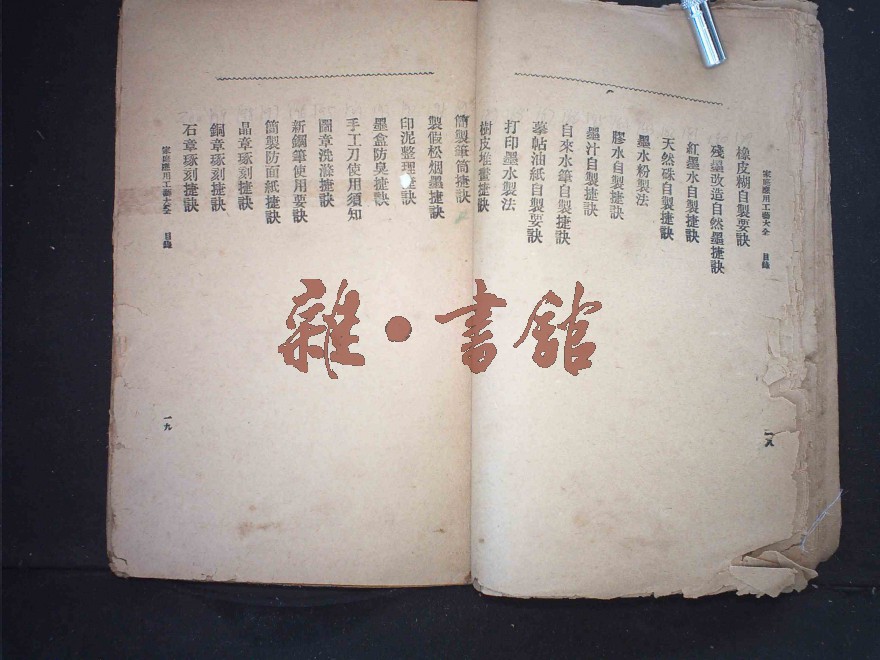 家庭應用工藝大全　目錄
橡皮糊自製要訣
殘墨改造自然墨捷訣
紅墨水自製捷訣
天然硃自製捷訣
墨水粉製法
膠水自製捷訣
墨汁自製捷訣
自來水筆自製捷訣
摹帖油紙自製要訣
打印墨水製法
樹皮堆畫捷訣
一八
簡製筆筒捷訣
製假松烟墨捷訣
印泥整理捷訣
墨盒防臭捷訣
手工刀使用須知
圖章洗滌捷訣
新鋼筆使用要訣
簡製防面紙捷訣
晶章琢刻捷訣
銅章琢刻捷訣
石章琢刻捷訣
家庭應用工藝大全　目錄
一九
雜·書館